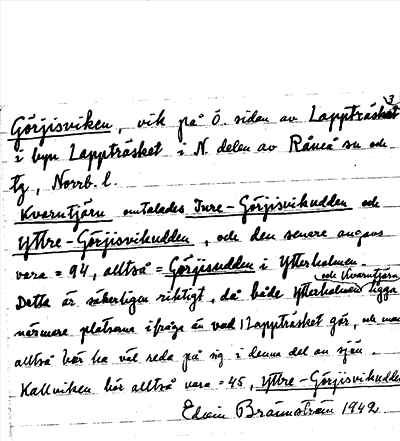 3
Görjisviken, vik på Ö. sidan av Lappträsket
i byn Lappträsket i N. delen av Råneå sn och
tg, Norrb. l.
Kvarntjärn omtalades Inre-Görjisviksudden och
Yttre-Görjisviksudden, och den senare angavs
vara = 94, alltså = Görjisudden i Ytterholmen.
Detta är säkerligen riktigt, då både Ytterholmen och Kvarntjärn ligga
närmare platserna ifråga än vad Lappträsket gör, och man
alltså bör ha väl reda på sig i denna del av sjön.
Kallviken bör alltså vara = 45, Yttre-Görjisviksudden
Edvin Brännström 1942